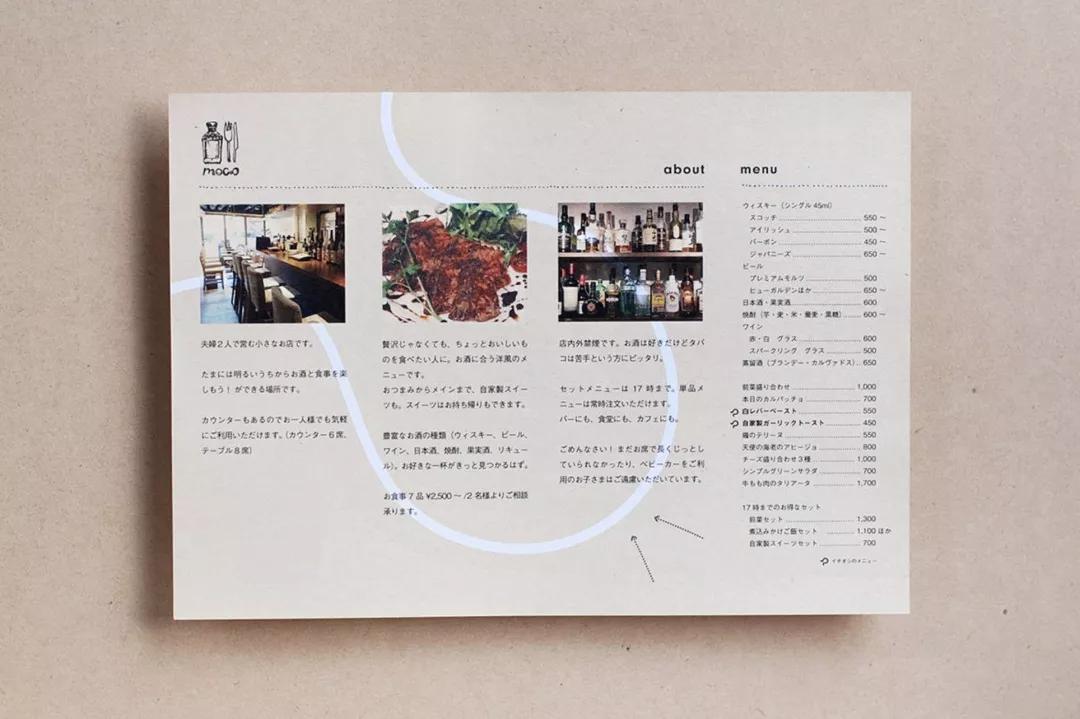 moco
about
menu
夫婦2人で営む小さなお店です。
たまには明るいうちからお酒と食事を楽
しもう！ができる場所です。
カウンターもあるのでお一人様でも気軽
にご利用いただけます。（カウンター6席、
テーブル8席）
贅沢じゃなくても、ちょっとおいしいも
のを食べたい人に。お酒に合う洋風のメ
ニューです。
おつまみからメインまで、自家製スイー
ツも。スイーツはお持ち帰りもできます。
豊富なお酒の種類（ウィスキー、ビール、
ワイン、日本酒、焼酎、果実酒、リキュー
ル）。お好きな一杯がきっと見つかるはず。
お食事7品 ¥2,500〜 /2名様よりご相談
承ります。
店内外禁煙です。お酒は好きだけどタバ
コは苦手という方にピッタリ。
セットメニューは 17 時まで。単品メ
ニューは常時注文いただけます。
バーにも、食堂にも、カフェにも。
ごめんなさい！まだお席で長くじっとし
ていられなかったり、ベビーカーをご利
用のお子さまはご遠慮いただいています。
ウィスキー（シングル 45ml）
スコッチ 550 〜
アイリッシュ 500 〜
バーボン 450 〜
ジャパニーズ 650 〜
ビール
プレミアムモルツ 500
ヒューガルデンほか 650 〜
日本酒・果実酒 600
焼酎（芋・麦・米・蕎麦・黒糖） 600 〜
ワイン
赤・白 グラス 600
スパークリング グラス 500
蒸留酒（ブランデー・カルヴァドス） 650
前菜盛り合わせ 1,000
本日のカルパッチョ 700
白レバーペースト 550
自家製ガーリックトースト 450
鶏のテリーヌ 550
天使の海老のアヒージョ 800
チーズ盛り合わせ3種 1,000
シンプルグリーンサラダ 700
牛もも肉のタリアータ 1,700
17時までのお得なセット
前菜セット 1,300
煮込みかけご飯セット 1,100 ほか
自家製スイーツセット 700
イチオシのメニュー